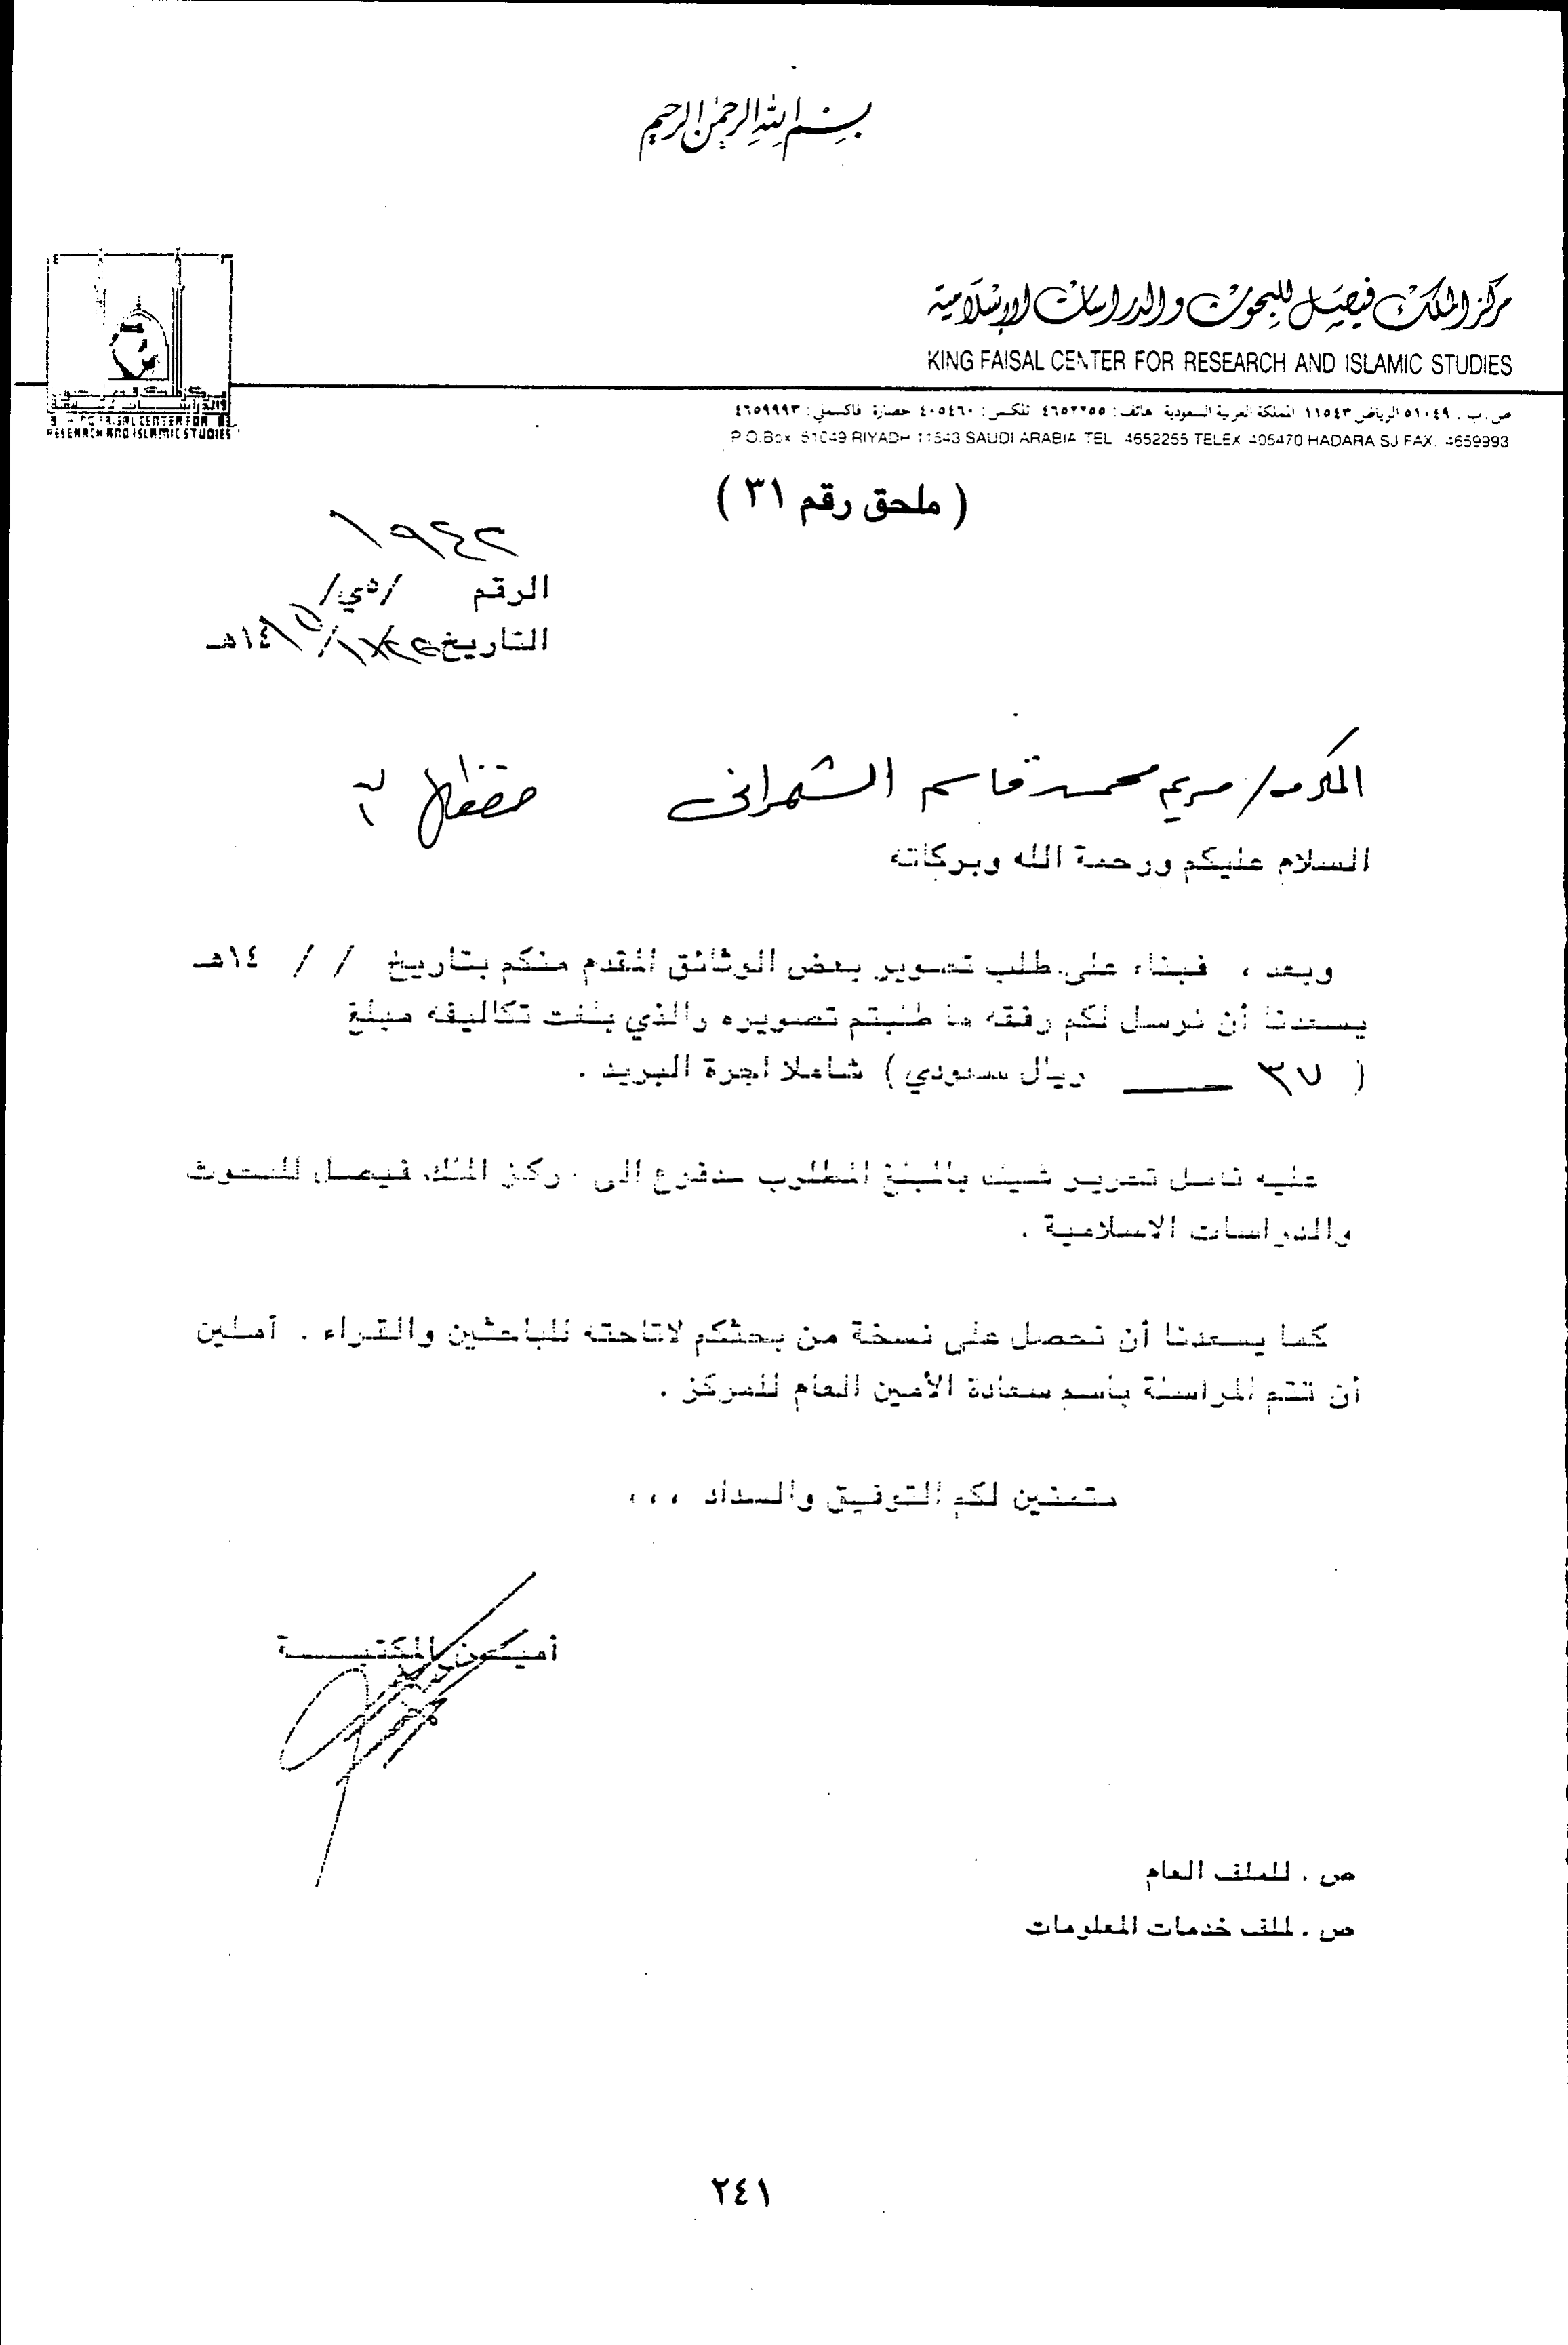 بسم الله الرحمن الرحيم
مركز الملك فيصل للبحوث والدراسات الإسلامية
KING FAISAL CENTER FOR RESEARCH AND ISLAMIC STUDIES
ص.ب. ٥١٠٤٩ الرياض ١١٥٤٣ المملكة العربية السعودية هاتف: ٤٦٥٢٢٥٥ تلكس: ٤٠٥٤٦٠ حضارة فاكسملي: ٤٦٥٩٩٩٣
P.O.Box 51049 RIYADH 11543 SAUDI ARABIA TEL 4652255 TELEX 405470 HADARA SJ FAX. 4659993
( ملحق رقم ٣١ )
١٩٤٢
الرقم /٥ي/
التاريخ ١٤هـ
المكرمة/ مريم محمد قاسم الشهراني حفظها الله
السلام عليكم ورحمة الله وبركاته
وبعد ، فبناء على طلب تصوير بعض الوثائق المقدم منكم بتاريخ / / ١٤هـ
يسعدنا أن نرسل لكم رفقه ما طلبتم تصويره والذي بلغت تكاليفه مبلغ
( ٣٧ ريال سعودي ) شاملا اجرة البريد .
عليه نامل تحرير شيك بالمبلغ المطلوب مدفوع الى مركز الملك فيصل للبحوث
والدراسات الاسلامية .
كما يسعدنا أن نحصل على نسخة من بحثكم لاتاحته للباحثين والقراء . آملين
أن تتم المراسلة باسم سعادة الأمين العام للمركز .
متمنين لكم التوفيق والسداد ،،،
أميـن المكتبـــة
ص . للملف العام
ص . لملف خدمات المعلومات
٢٤١